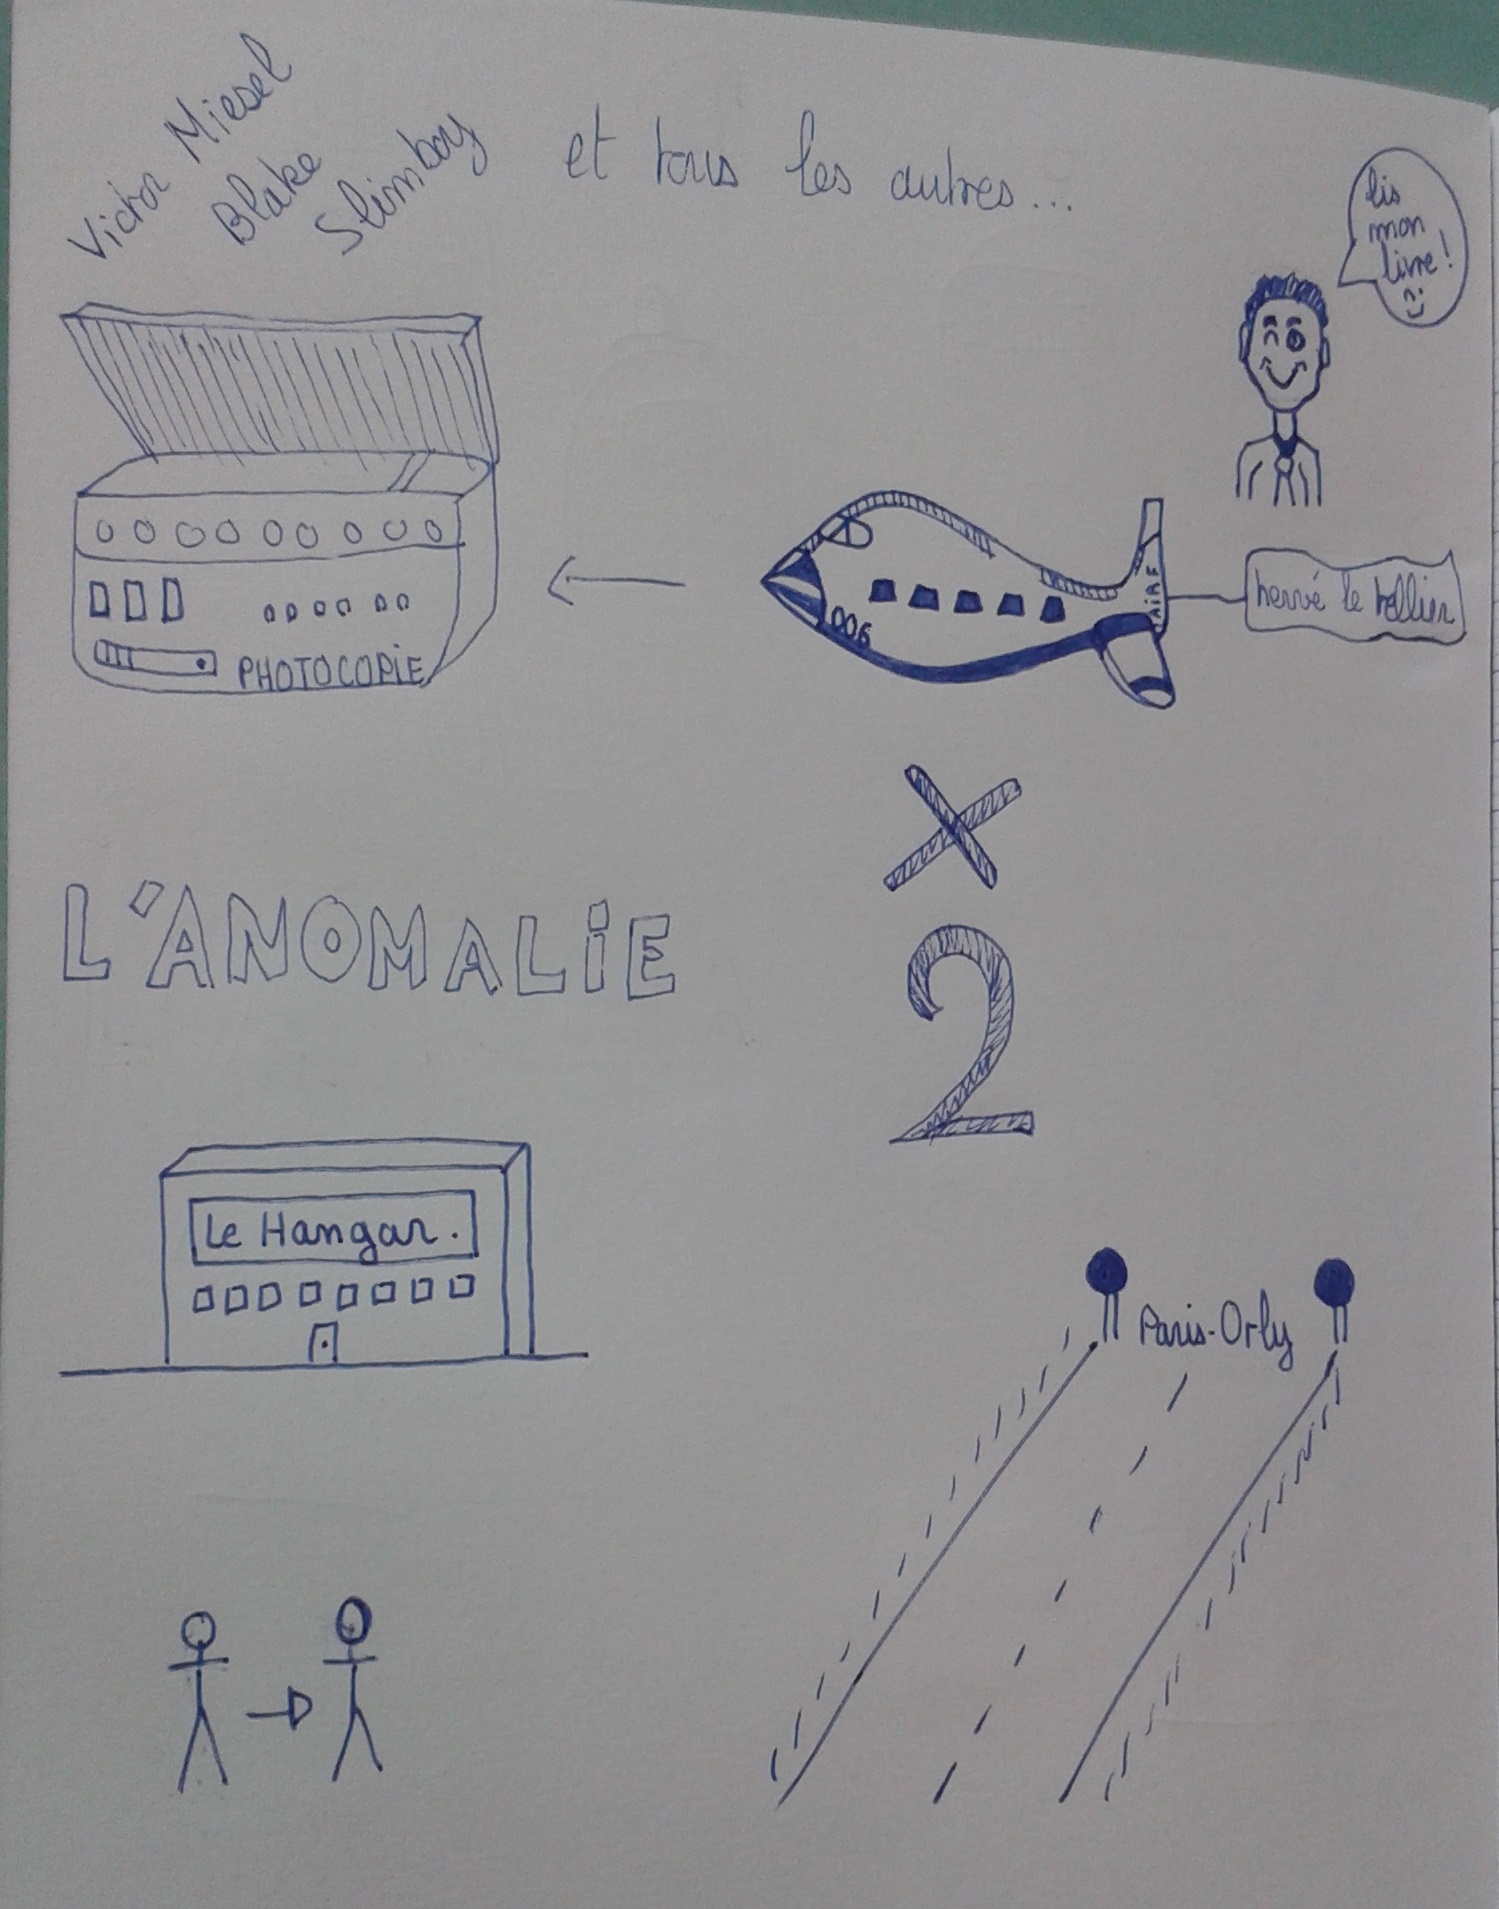 Victor Miesel
Blake
Slimboy
et tous les autres...
lis
mon
livre!
PHOTOCOPIE
006
AIRF
hervé le tellier
X
2
L'ANOMALIE
Le Hangar.
Paris-Orly